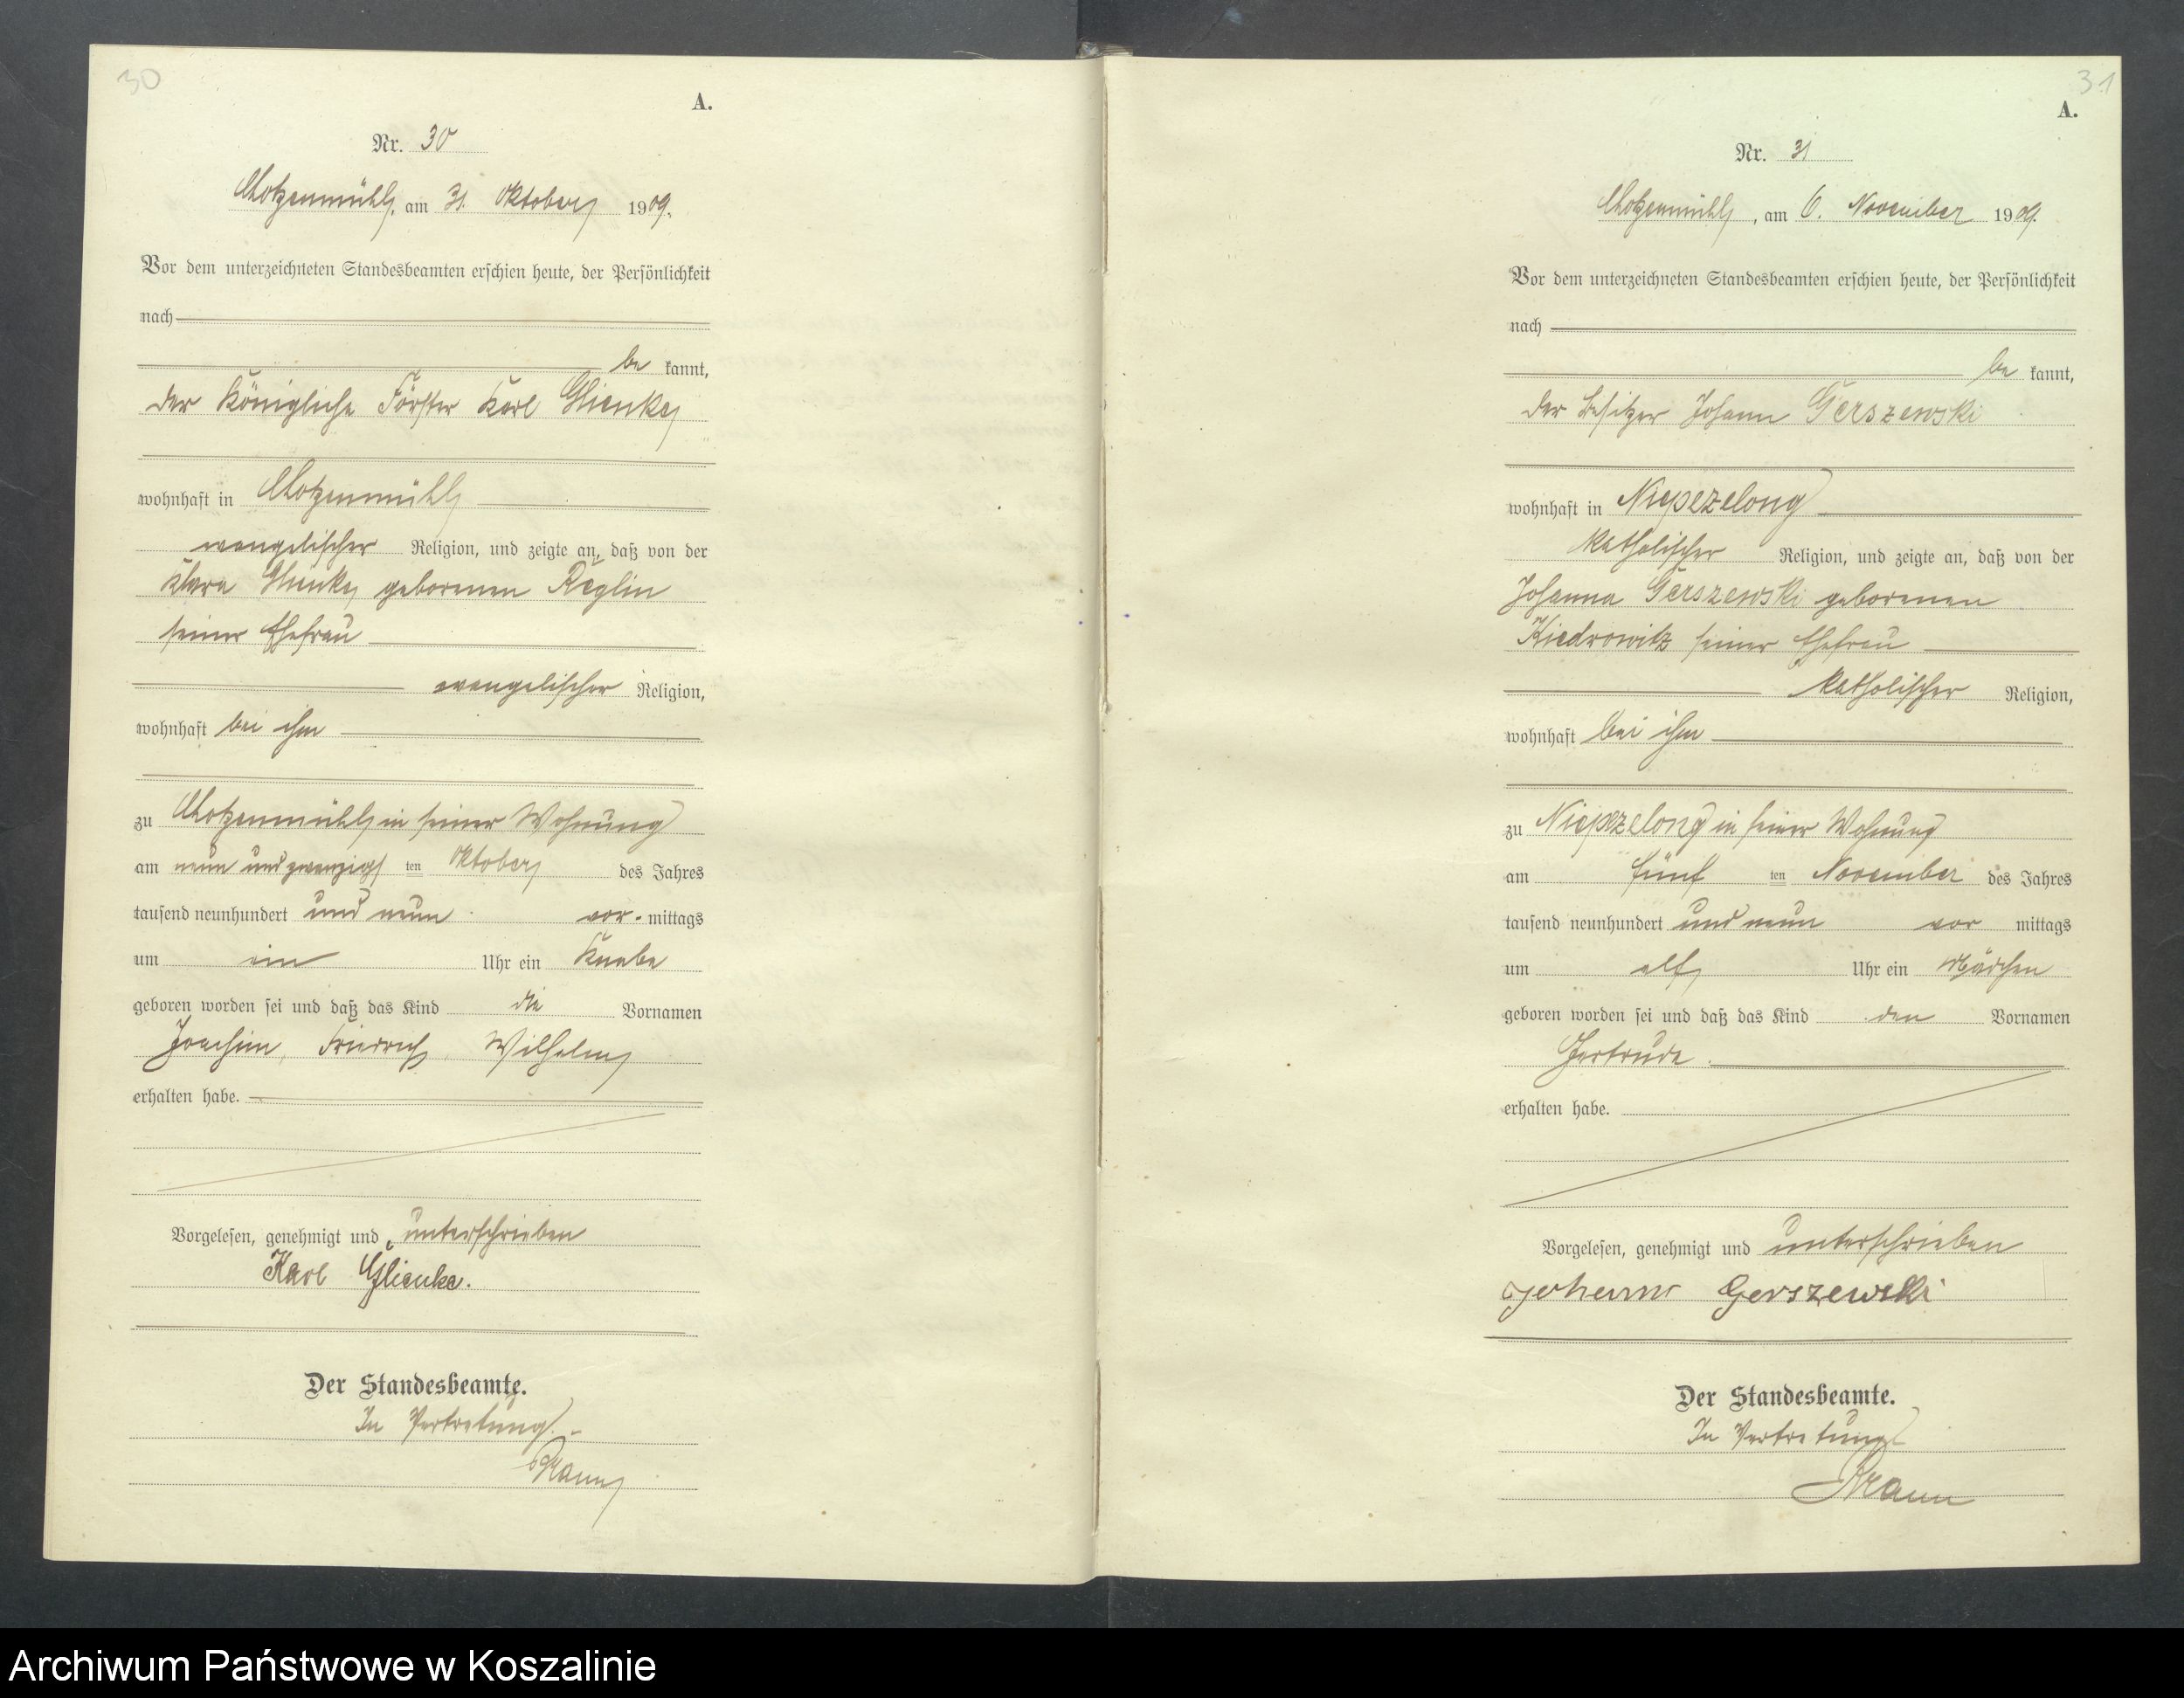 30
A.
Nr. 30
Chotzenmühl, am 31. Oktober 1909.
Vor dem unterzeichneten Standesbeamten erschien heute, der Persönlichkeit
nach
be kannt,
der Königliche Förster Karl Glienke
wohnhaft in Chotzenmühl
evangelischer Religion, und zeigte an, daß von der
Klara Glienke geborenen Reglin
seiner Ehefrau
evangelischer Religion,
wohnhaft bei ihm
zu Chotzenmühl in seiner Wohnung
am neun und zwanzigs ten Oktober des Jahres
tausend neunhundert und neun vor mittags
um ein Uhr ein Knabe
geboren worden sei und daß das Kind die Vornamen
Joachim, Friedrich, Wilhelm
erhalten habe.
Vorgelesen, genehmigt und unterschrieben
Karl Glienke.
Der Standesbeamte.
In Vertretung.
31
A.
Nr. 31
Chotzenmühl, am 6. November 1909.
Vor dem unterzeichneten Standesbeamten erschien heute, der Persönlichkeit
nach
be kannt,
der Besitzer Johann Gerszewski
wohnhaft in Niepszelong
katholischer Religion, und zeigte an, daß von der
Johanna Gerszewski geborenen
Kiedrowitz seiner Ehefrau
katholischer Religion,
wohnhaft bei ihm
zu Niepszelong in seiner Wohnung
am fünf ten November des Jahres
tausend neunhundert und neun vor mittags
um elf Uhr ein Mädchen
geboren worden sei und daß das Kind den Vornamen
Gertrude
erhalten habe.
Vorgelesen, genehmigt und unterschrieben
Johann Gerszewski
Der Standesbeamte.
In Vertretung
Archiwum Państwowe w Koszalinie